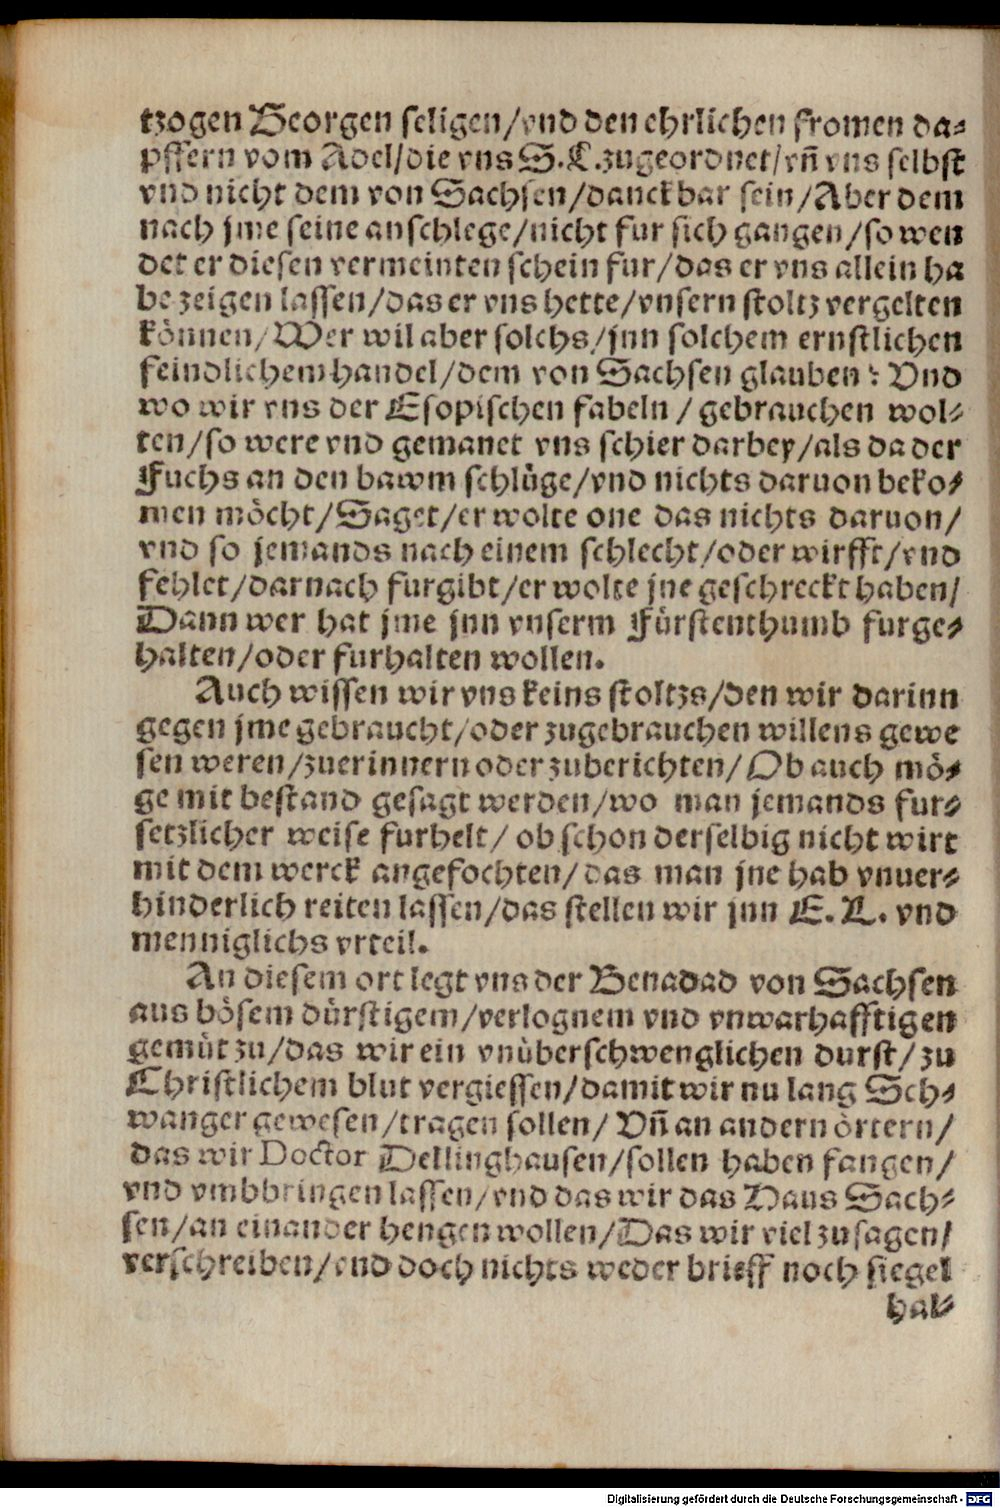 tzogen Georgen seligen/vnd den ehrlichen fromen da⸗
pffern vom Adel/die vns S.L.zugeordnet/vñ vns selbst
vnd nicht dem von Sachsen/danckbar sein/Aber dem
nach jme seine anschlege/nicht fur sich gangen/so wen
det er diesen vermeinten schein fur/das er vns allein ha
be zeigen lassen/das er vns hette/vnsern stoltz vergelten
können/Wer wil aber solchs/jnn solchem ernstlichen
feindlichem handel/dem von Sachsen glauben? Vnd
wo wir vns der Esopischen fabeln/gebrauchen wol⸗
ten/so were vnd gemanet vns schier darbey/als da der
Fuchs an den bawm schlüge/vnd nichts daruon beko⸗
men möcht/Saget/er wolte one das nichts daruon/
vnd so jemands nach einem schlecht/oder wirfft/vnd
fehlet/darnach furgibt/er wolte jne geschreckt haben/
Dann wer hat jme jnn vnserm Fürstenthumb furge⸗
halten/oder furhalten wollen.
Auch wissen wir vns keins stoltzs/den wir darinn
gegen jme gebraucht/oder zugebrauchen willens gewe
sen weren/zuerinnern oder zuberichten/Ob auch mö⸗
ge mit bestand gesagt werden/wo man jemands fur⸗
setzlicher weise furhelt/ob schon derselbig nicht wirt
mit dem werck angefochten/das man jne hab vnuer⸗
hinderlich reiten lassen/das stellen wir jnn E.L. vnd
menniglichs vrteil.
An diesem ort legt vns der Benadad von Sachsen
aus bösem dürstigem/verlognem vnd vnwarhafftigen
gemüt zu/das wir ein vnüberschwenglichen durst/zu
Christlichem blut vergiessen/damit wir nu lang Sch⸗
wanger gewesen/tragen sollen/Vñ an andern örtern/
das wir Doctor Dellinghausen/sollen haben fangen/
vnd vmbbringen lassen/vnd das wir das Haus Sach⸗
sen/an einander hengen wollen/Das wir viel zusagen/
verschreiben/vnd doch nichts weder brieff noch siegel
hal⸗
Digitalisierung gefördert durch die Deutsche Forschungsgemeinschaft - DFG